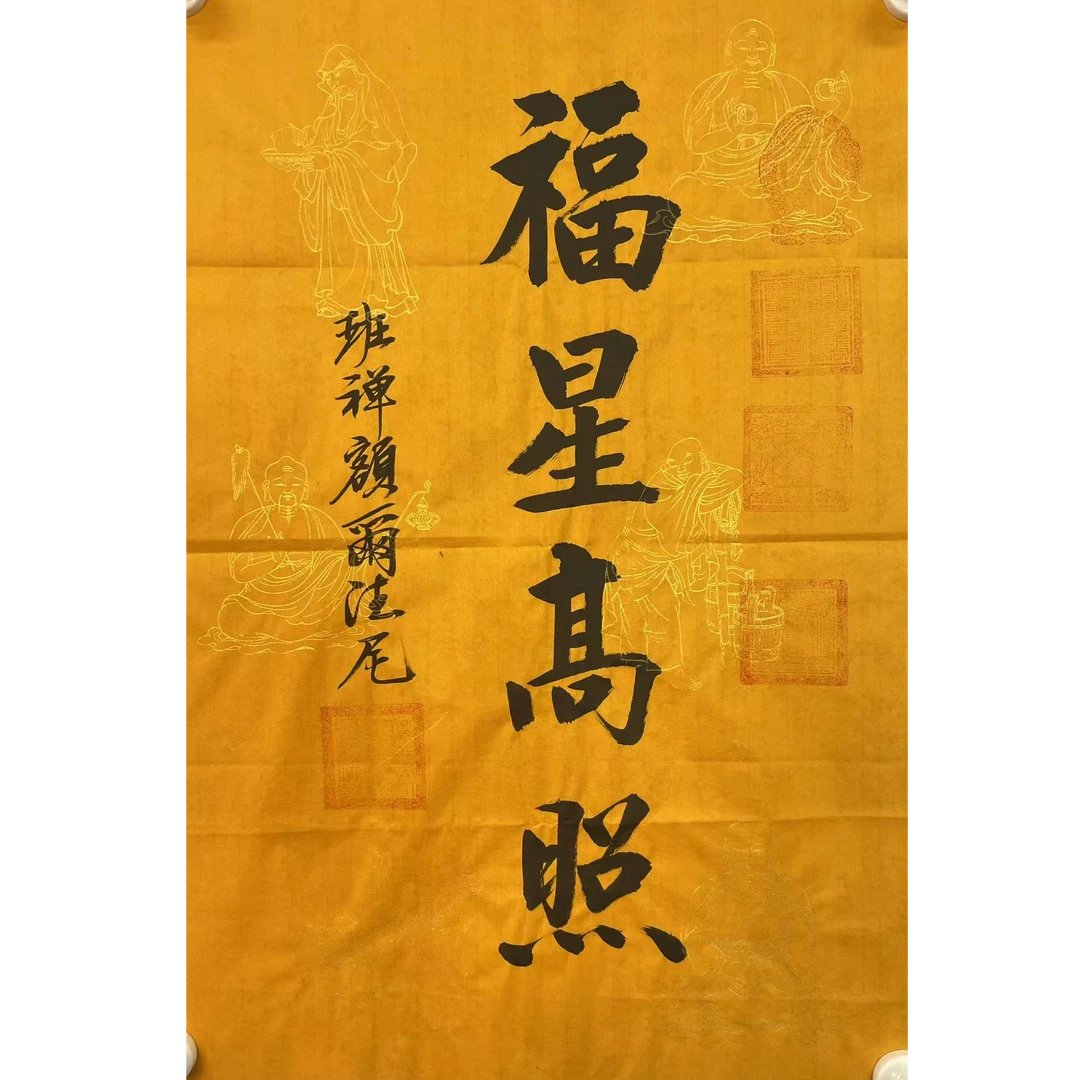 福星高照
班禅額爾法尼